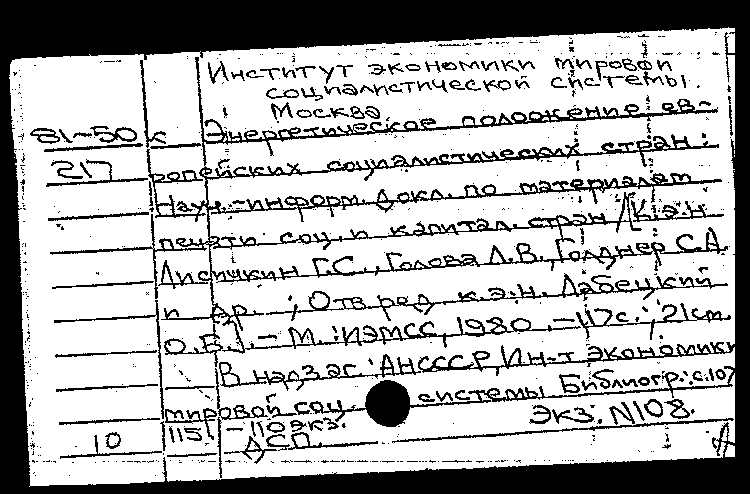 Институт экономики мировой
социалистической системы.
Москва.
81-50 к Энергетическое положение ев-
217 ропейских социалистических стран:
Науч.-информ. докл. по материалам
печати соц. и капитал. стран /К.э.н.
Лисичкин Г.С., Голова Л.В., Голднер С.А.
и др.; Отв. ред. к.э.н. Лабецкий
О.Б./.- М.: ИЭМСС, 1980.-117с.; 21см.
В надзаг: АН СССР, Ин-т экономики
мировой соц. системы Библиогр.: с.107
115. -110экз. Экз. N108.
10 ДСП.
А